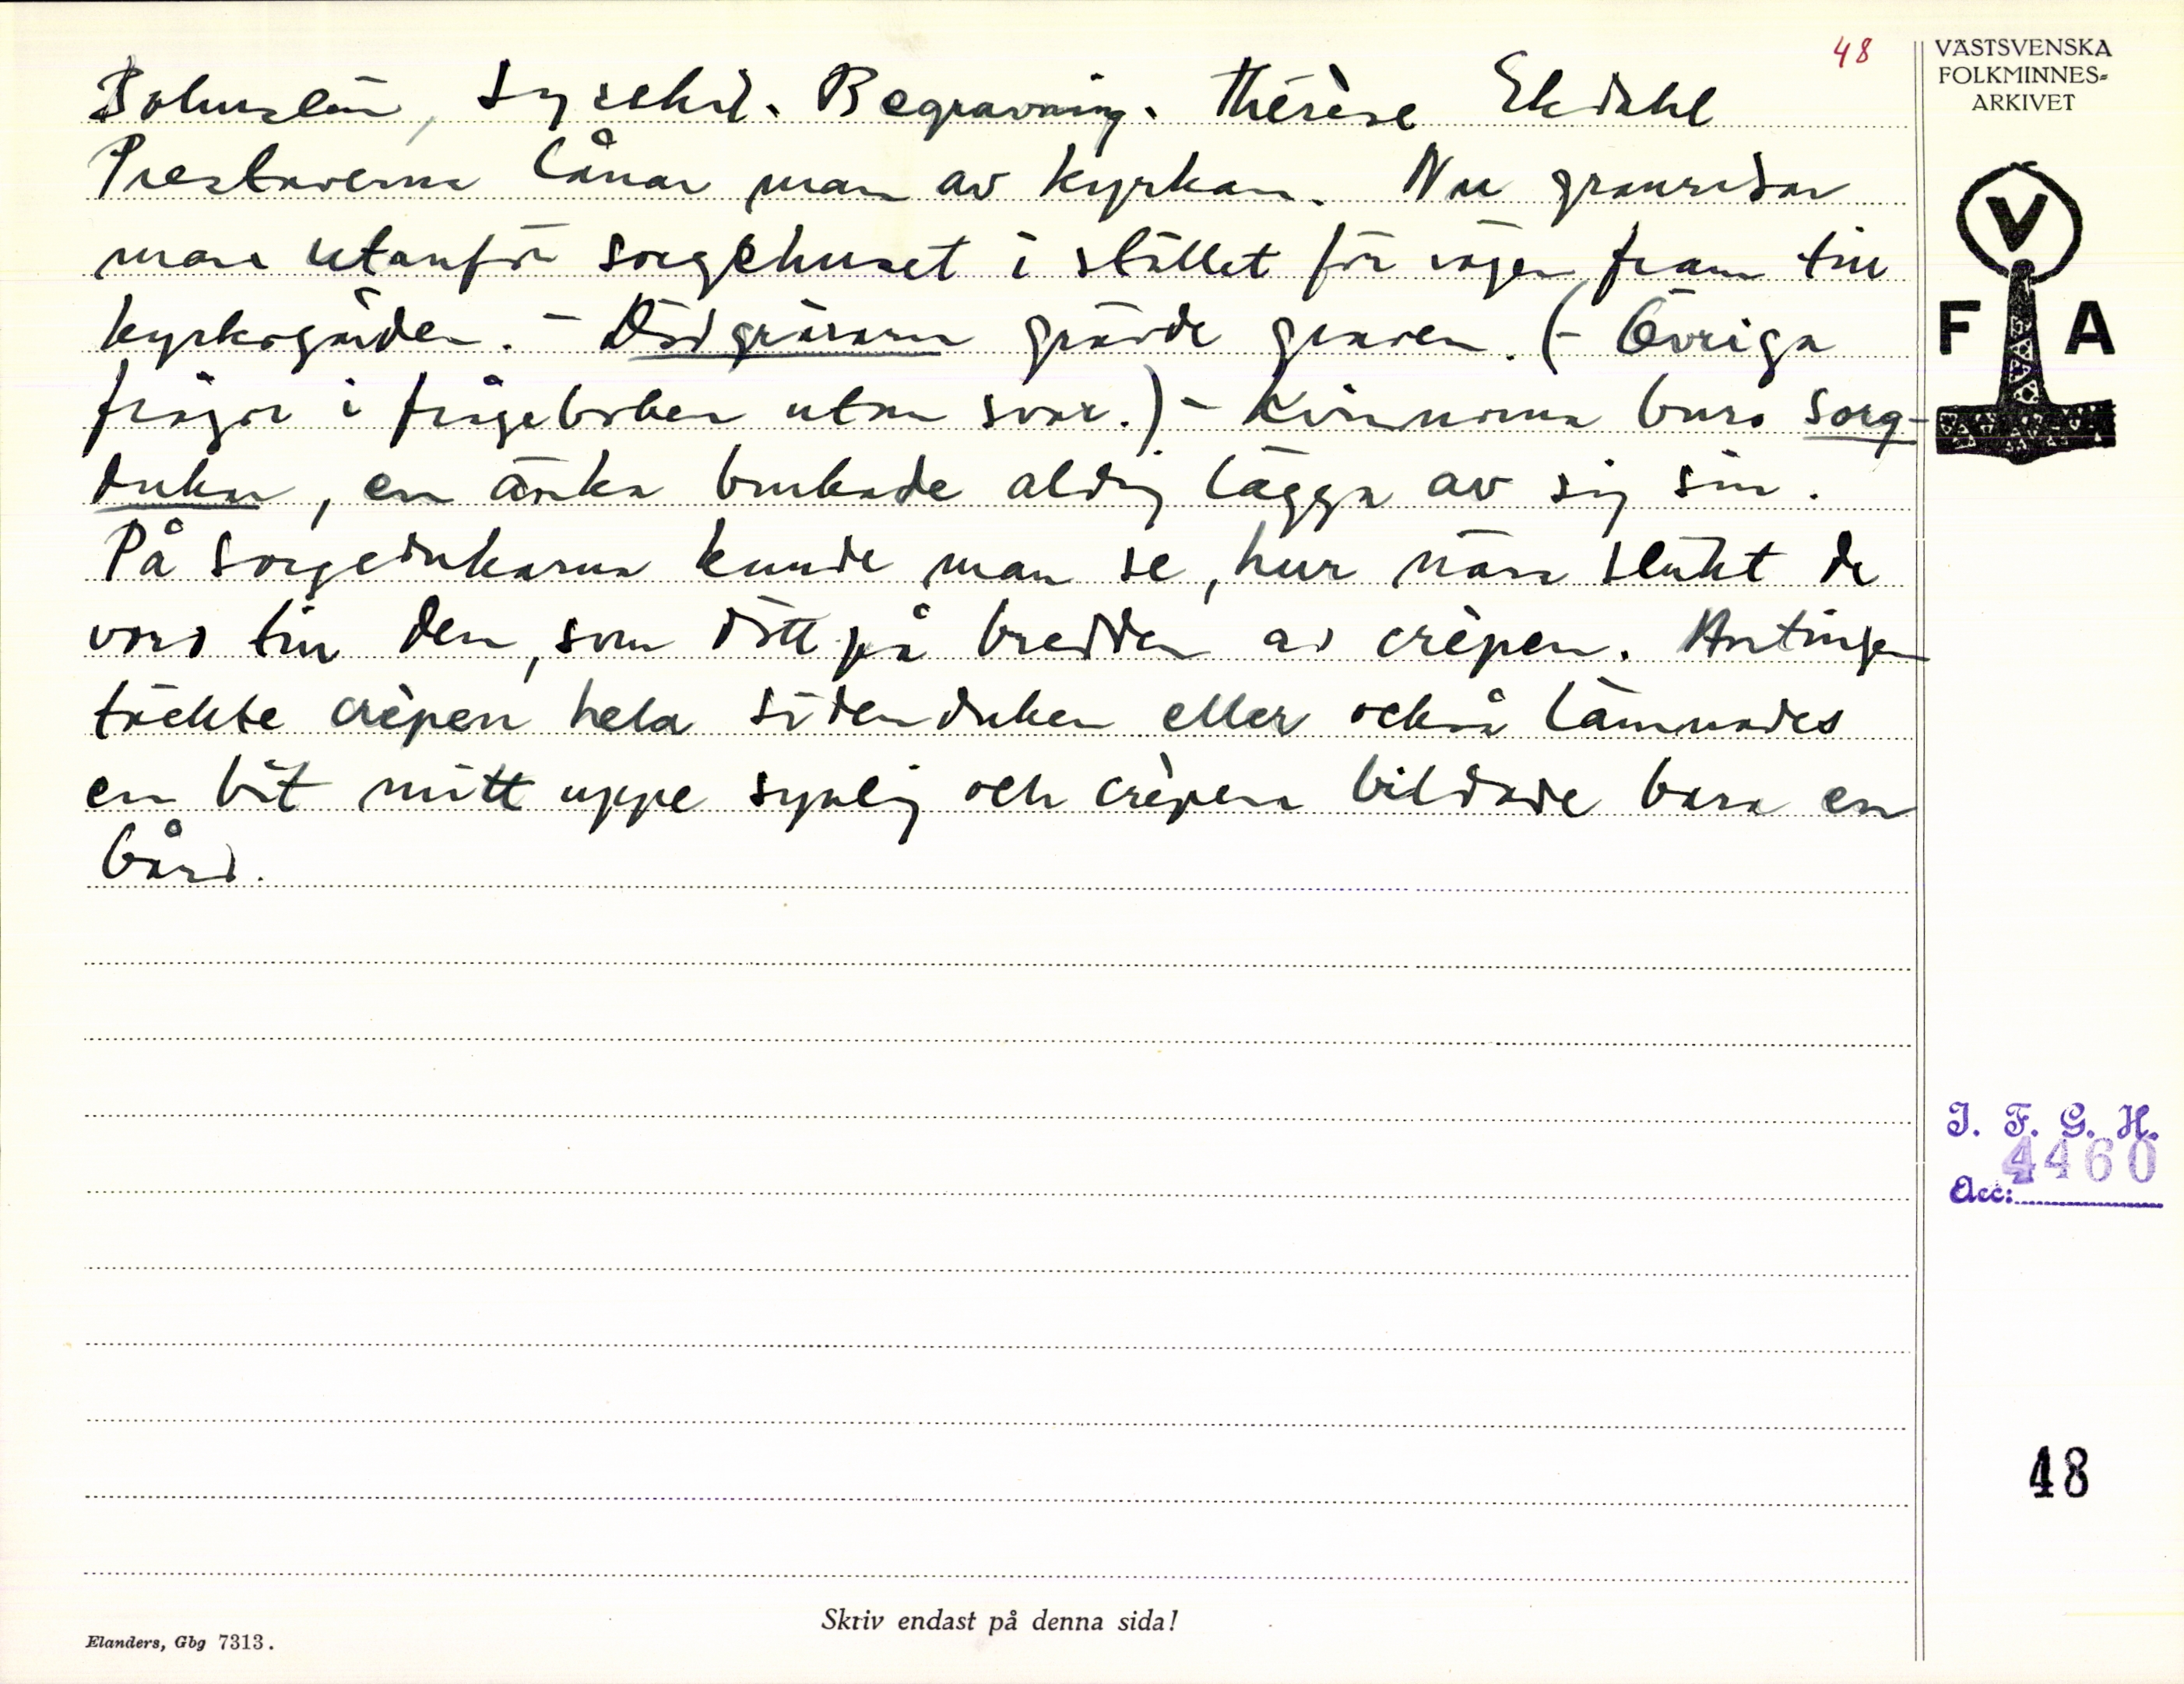 48
VÄSTSVENSKA
FOLKMINNES-
ARKIVET
Bohuslän, Lysekil. Begravning. Thérèse Ekdahl
Prestaverna lånar man av kyrkan. Nu granrisar
man utanför sorgehuset i stället för vägen fram till
kyrkogården. - Dödgrävarn grävde graven. (- Övriga
frågor i frågeboken utan svar.) - Kvinnorna buro sorg-
dukar, en änka brukade aldrig lägga av sig sin.
På sorgedukarna kunde man se, hur nära släkt de
voro till den, som dött på bredden av crèpen. Antingen
täckte crèpen hela sidenduken eller också lämnades
en bit mitt uppe synlig och crèpen bildade bara en
bård.
V
F A
I. F. G. H.
4460
Acc:
48
Skriv endast på denna sida!
Elanders, Gbg 7313.